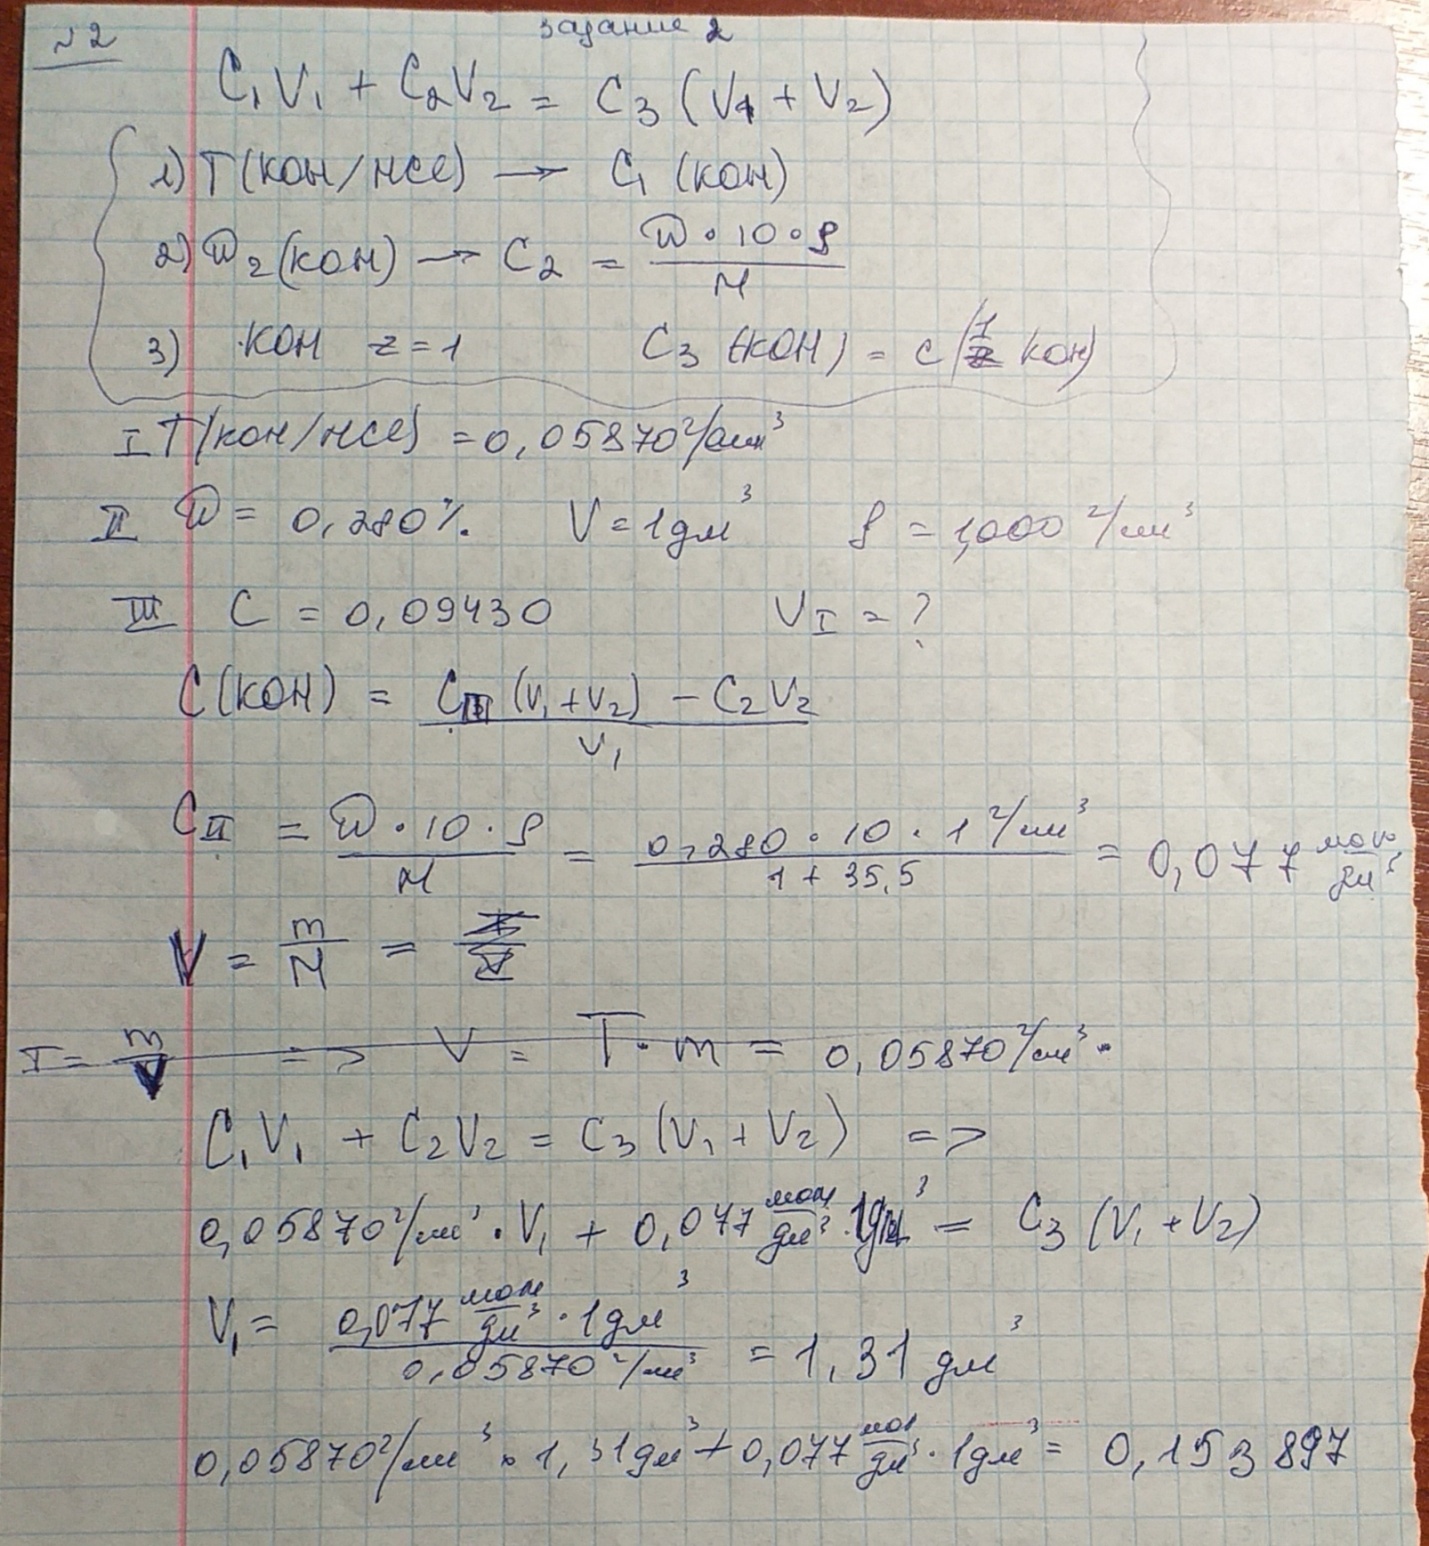 Задание 2
№2
C₁V₁ + C₂V₂ = C₃ (V₁ + V₂)
1) T(KOH/HCl) → C₁ (KOH)
2) ω₂(KOH) → C₂ = ω · 10 · ρ / M
3) KOH z = 1 C₃ (KOH) = c(1/z KOH)
I T(KOH/HCl) = 0,05870 г/см³
II ω = 0,280%. V = 1дм³ ρ = 1,000 г/см³
III C = 0,09430 V_I = ?
C(KOH) = C_III (V₁ + V₂) - C₂V₂ / V₁
C_II = ω · 10 · ρ / M = 0,280 · 10 · 1 г/см³ / 1 + 35,5 = 0,077 моль/дм³
V = m/M =
T = m/V => V = T · m = 0,05870 г/см³ ·
C₁V₁ + C₂V₂ = C₃ (V₁ + V₂) =>
0,05870 г/см³ · V₁ + 0,077 моль/дм³ · 1дм³ = C₃ (V₁ + V₂)
V₁ = 0,077 моль/дм³ · 1дм³ / 0,05870 г/см³ = 1,31 дм³
0,05870 г/см³ · 1,31дм³ + 0,077 моль/дм³ · 1дм³ = 0,153897